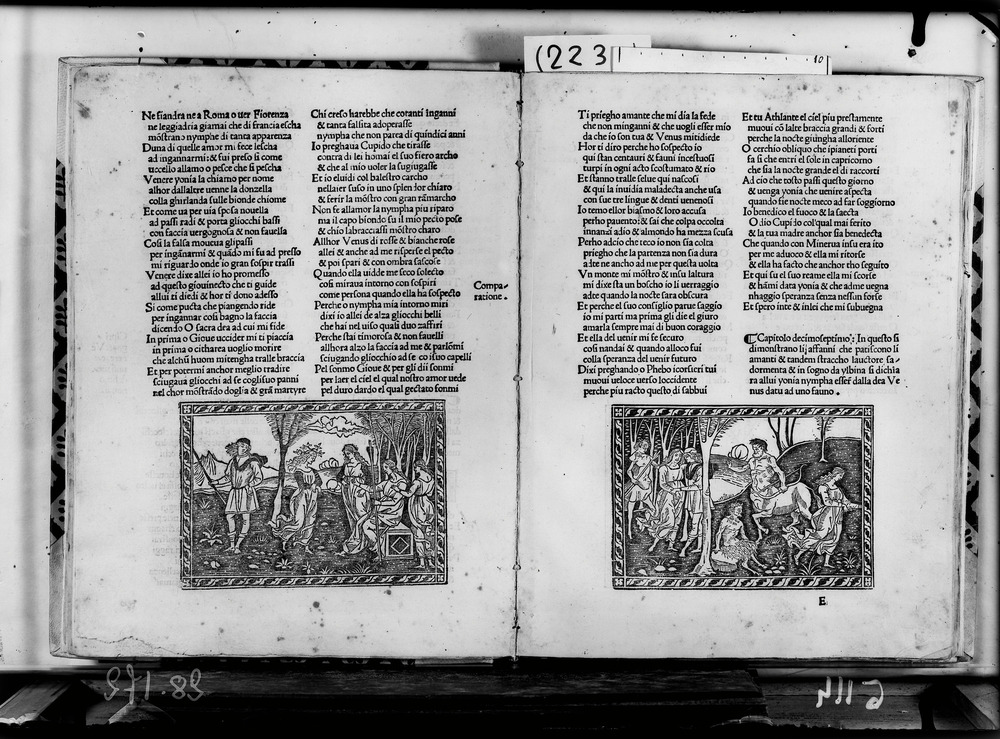 (223
10
Ne siandra ne a Roma o uer Fiorenza
ne leggiadria giamai che di francia escha
mōstran > nymphe di tanta apparenza
Duna di quelle amor mi fece lescha
ad ingannarmi: & fui preso si come
uccello allamo o pesce che si pescha
Venere yonia la chiamo per nome
alhor dallaltre uenne la donzella
colla ghirlanda sulle bionde chiome
Et come ua per uia sposa nouella
ad passi radi & porta gliocchi bassi
con faccia uergognosa & non fauella
Cosi la falsa moueua glipassi
per ingānarmi & quādo mi fu ad presso
mi riguardo onde io gran sospir trassi
Venere dixe allei io ho promesso
ad questo giouinecto che ti guide
allui ti diedi & hor ti dono adesso
Si come pucta che piangendo ride
per ingannar cosi bagno la faccia
dicendo O sacra dea ad cui mi fide
In prima o Gioue uccider mi ti piaccia
in prima o citharea uoglio morire
che alchū huom mitengha tralle braccia
Et per potermi anchor meglio tradire
sciugaua gliocchi ad se cogli suo panni
nel chor mōstrādo doglia & grā martyre
Chi creso harebbe che cotanti inganni
& tanta falsita adoperasse
nympha che non parea di quindici anni
Io preghaua Cupido che tirasse
contra di lei homai el suo fiero archo
& che al mio uoler la sugiugasse
Et io eluidi col balestro carcho
nellaier suso in uno splendor chiaro
& ferir la mōstro con gran rāmarcho
Non fe allamor la nympha piu riparo
ma il capo biondo su il mio pecto pose
& chio labracciassi mōstro charo
Allhor Venus di rosse & bianche rose
allei & anche ad me risperse el pecto
& poi spari & con ombra sascose
Quando ella uidde me seco solecto
cosi miraua intorno con sospiri
come persona quando ella ha sospecto
Perche o nympha mia intorno miri
dixi io allei de alza gliocchi belli
che hai nel uiso quasi duo zaffiri
Perche stai timorosa & non fauelli
allhora alzo la faccia ad me & parlōmi
sciugando gliocchio ad se co isuo capelli
Pel sonmo Gioue & per gli dii sonmi
per laer el ciel el qual nostro amor uede
pel duro dardo el qual gectato sonmi
Compa-
ratione.
Ti priegho amante che mi dia la fede
che non minganni & che uogli esser mio
da che io son tua & Venus mitidiede
Hor ti diro perche ho sospecto io
qui stan centauri & fauni incestuosi
turpi in ogni acto scostumato & rio
Et stanno tralle selue qui nascosi
& qui la inuidia maladecta anche usa
con sue tre lingue & denti uenenosi
Io temo ellor biasmo & loro accusa
perho pauento: & sai che colpa occolta
innanzi adio & almondo ha mezza scusa
Perho adcio che teco io non sia colta
priegho che la partenza non sia dura
adte ne ancho ad me per questa uolta
Vn monte mi mōstro & insu laltura
mi dixe sta un boscho io li uerraggio
adte quando la nocte sara obscura
Et perche el suo consiglio parue saggio
io mi parti ma prima gli die el giuro
amarla sempre mai di buon coraggio
Et ella del uenir mi fe securo
cosi nandai & quando alloco fui
colla speranza del uenir futuro
Dixi preghando o Phebo icorsieri tui
muoui ueloce uerso loccidente
perche piu racto questo di sabbui
Et tu Athlante el ciel piu prestamente
muoui cō lalte braccia grandi & forti
perche la nocte giūngha alloriente
O cerchio obliquo che ipianeti porti
fa si che entri el sole in capricorno
che sia la nocte grande el di raccorti
Ad cio che tosto passi questo giorno
& uenga yonia che uenire aspecta
quando sie nocte meco ad far soggiorno
Io benedico el fuoco & la saecta
O dio Cupido col qual mai ferito
& la tua madre anchor sia benedecta
Che quando con Minerua insu era ito
per me aduoco & ella mi ritorse
& ella ha facto che anchor tho seguito
Et qui su el suo reame ella mi scorse
& hāmi data yonia & che adme uegna
nhaggio speranza senza nessun forse
Et spero inte & inlei che mi subuegna
¶ Capitolo decimoseptimo: In questo si
dimostrano lij affanni che patiscono li
amanti & tandem straccho lauctore sa-
dormenta & in sogno da ylbina si dichia
ra allui yonia nympha esser dalla dea Ve
nus data ad uno fauno.
E
28.172
6114